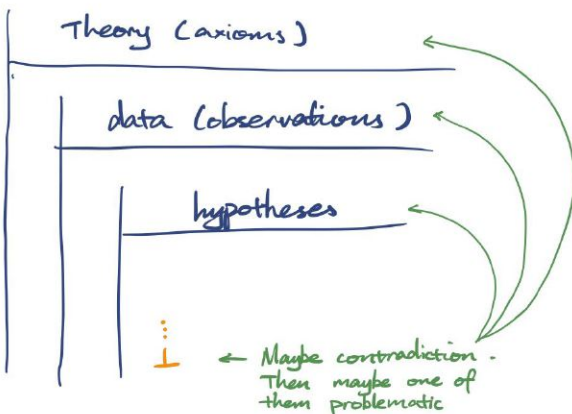 Theory (axioms)
data (observations)
hypotheses
⋮
⊥
← Maybe contradiction.
Then maybe one of
them problematic